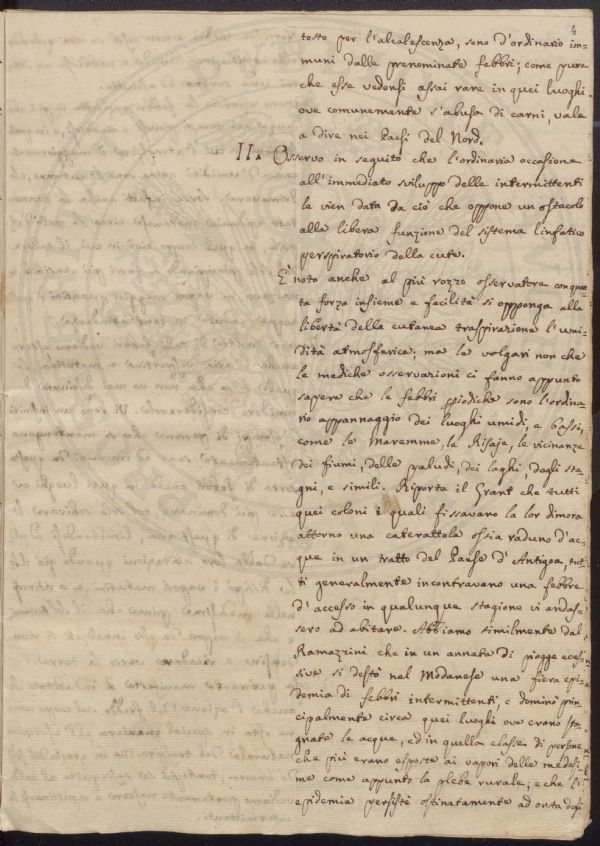 4
tosto per l'alcalescenza, sono d'ordinario im-
muni dalle prenominate febbri; come pure
che esse vedonsi assai rare in quei luoghi
ove comunemente s'abusa di carni, vale
a dire nei Paesi del Nord.
II. Osservo in seguito che l'ordinaria occasione
all'immediato sviluppo delle intermittenti
le vien data da ciò che oppone un ostacolo
alla libera funzione del sistema linfatico
perspiratorio della cute.
È noto anche al più rozzo osservatore con quan-
ta forza insieme e facilità si opponga alla
libertà della cutanea traspirazione l'umi-
dità atmosferica; ma le volgari non che
le mediche osservazioni ci fanno appunto
sapere che le febbri piodiche sono l'ordina-
rio appannaggio dei luoghi umidi, e bassi,
come le Maremme, le Risaje, le vicinanze
dei fiumi, delle paludi, dei laghi, degli sta-
gni, e simili. Riporta il Grant che tutti
quei coloni i quali fissavano la lor dimora
attorno una caterattola ossia raduno d'ac-
que in un tratto del Paese d'Antigoa, tut-
ti generalmente incontravano una febbre
d'accesso in qualunque stagione vi andas-
sero ad abitare. Abbiamo similmente dal
Ramazzini che in un annata di piogge eces-
sive si destò nel Modanese una fiera epi-
demia di febbri intermittenti, e dominò prin-
cipalmente circa quei luoghi ove erano sta-
gnate le acque, ed in quella classe di persone
che più erano esposte ai vapori delle medesi-
me come appunto la plebe rurale; e che l'
epidemia persistè ostinatamente ad onta degli